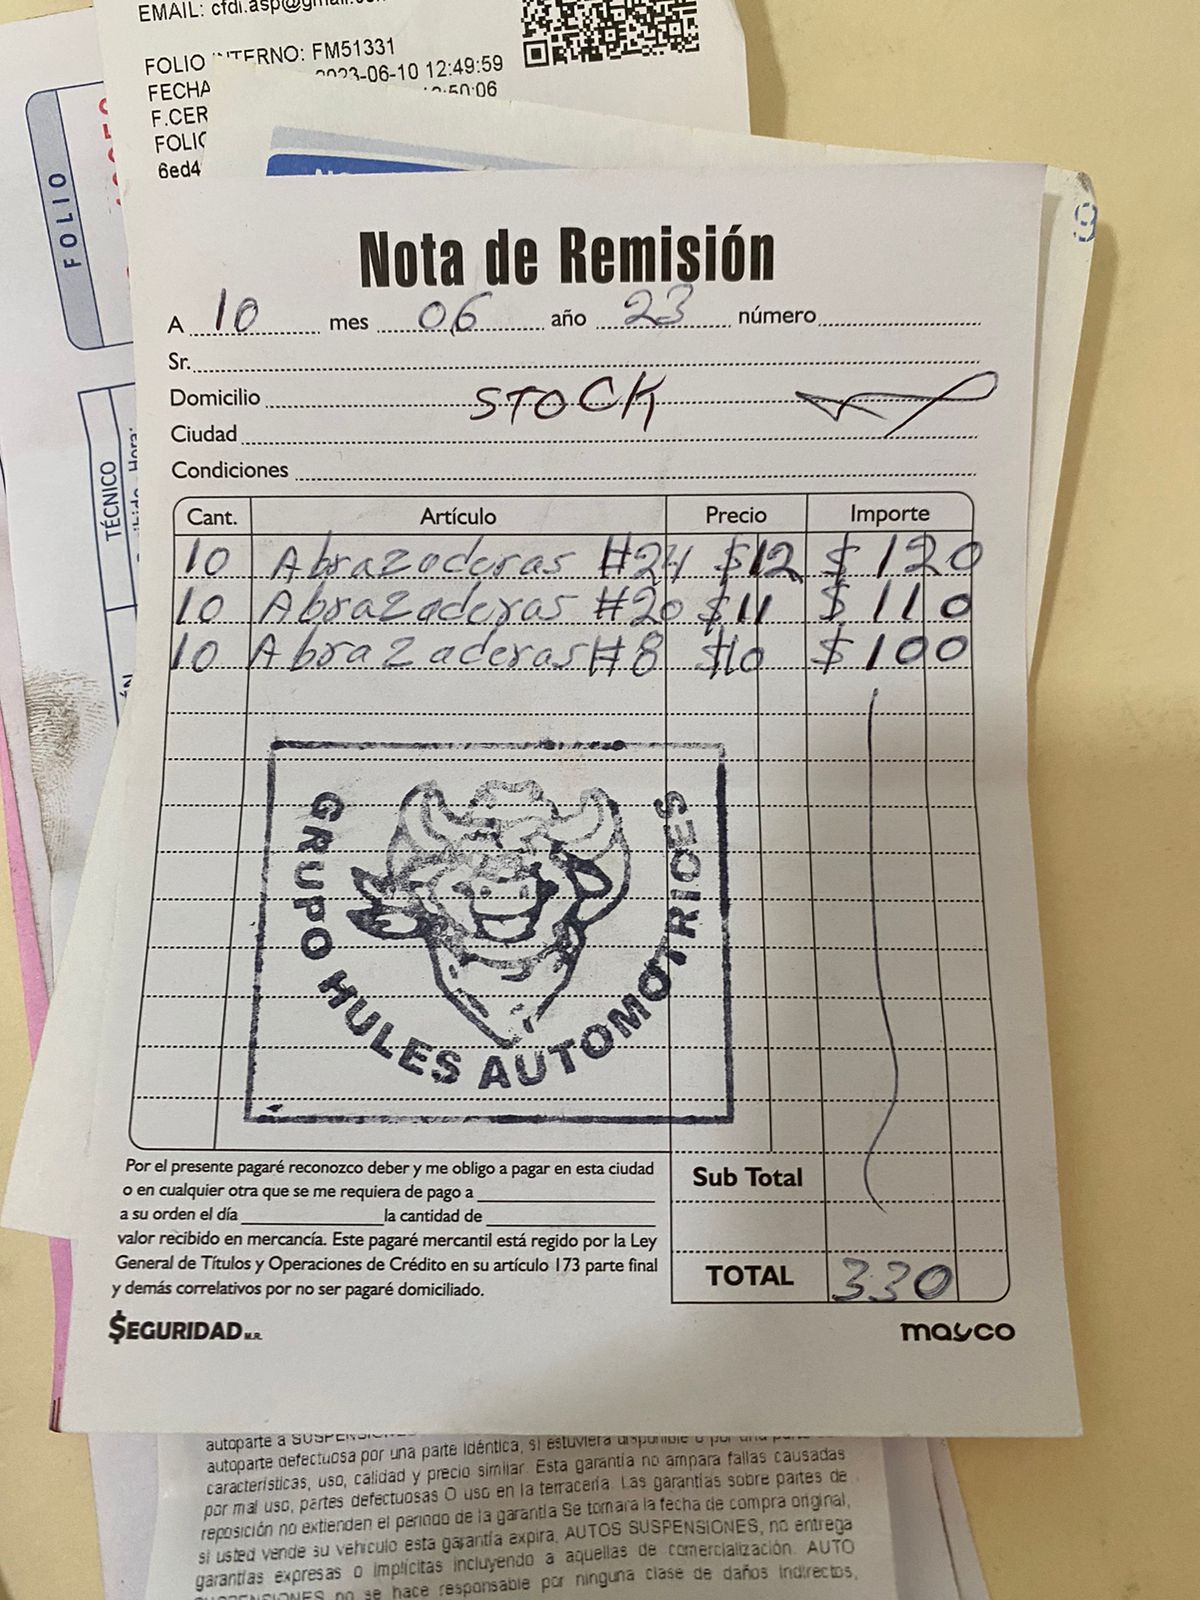 EMAIL: cfdi.asp@gmail
FOLIO INTERNO: FM51331
FECHA 2023-06-10 12:49:59
F.CER :50:06
FOLIO
6ed4
FOLIO
TÉCNICO
Hora:
9
Nota de Remisión
A 10 mes 06 año 23 número
Sr.
Domicilio STOCK
Ciudad
Condiciones
Cant. Artículo Precio Importe
10 Abrazaderas #24 $12 $120
10 Abrazaderas #20 $11 $110
10 Abrazaderas #8 $10 $100
GRUPO HULES AUTOMOTRICES
Por el presente pagaré reconozco deber y me obligo a pagar en esta ciudad
o en cualquier otra que se me requiera de pago a
a su orden el día la cantidad de
valor recibido en mercancía. Este pagaré mercantil está regido por la Ley
General de Títulos y Operaciones de Crédito en su artículo 173 parte final
y demás correlativos por no ser pagaré domiciliado.
Sub Total
TOTAL 330
$EGURIDAD M.R.
mayco
autoparte a
autoparte defectuosa por una parte idéntica, si estuviera disponible o por una
características, uso, calidad y precio similar. Esta garantía no ampara fallas causadas
por mal uso, partes defectuosas O uso en la terracería. Las garantías sobre partes de
reposición no extienden el periodo de la garantía Se tomara la fecha de compra original,
si usted vende su vehículo esta garantía expira, AUTOS SUSPENSIONES, no entrega
garantías expresas o implícitas incluyendo a aquellas de comercialización. AUTO
SUSPENSIONES no se hace responsable por ninguna clase de daños indirectos,